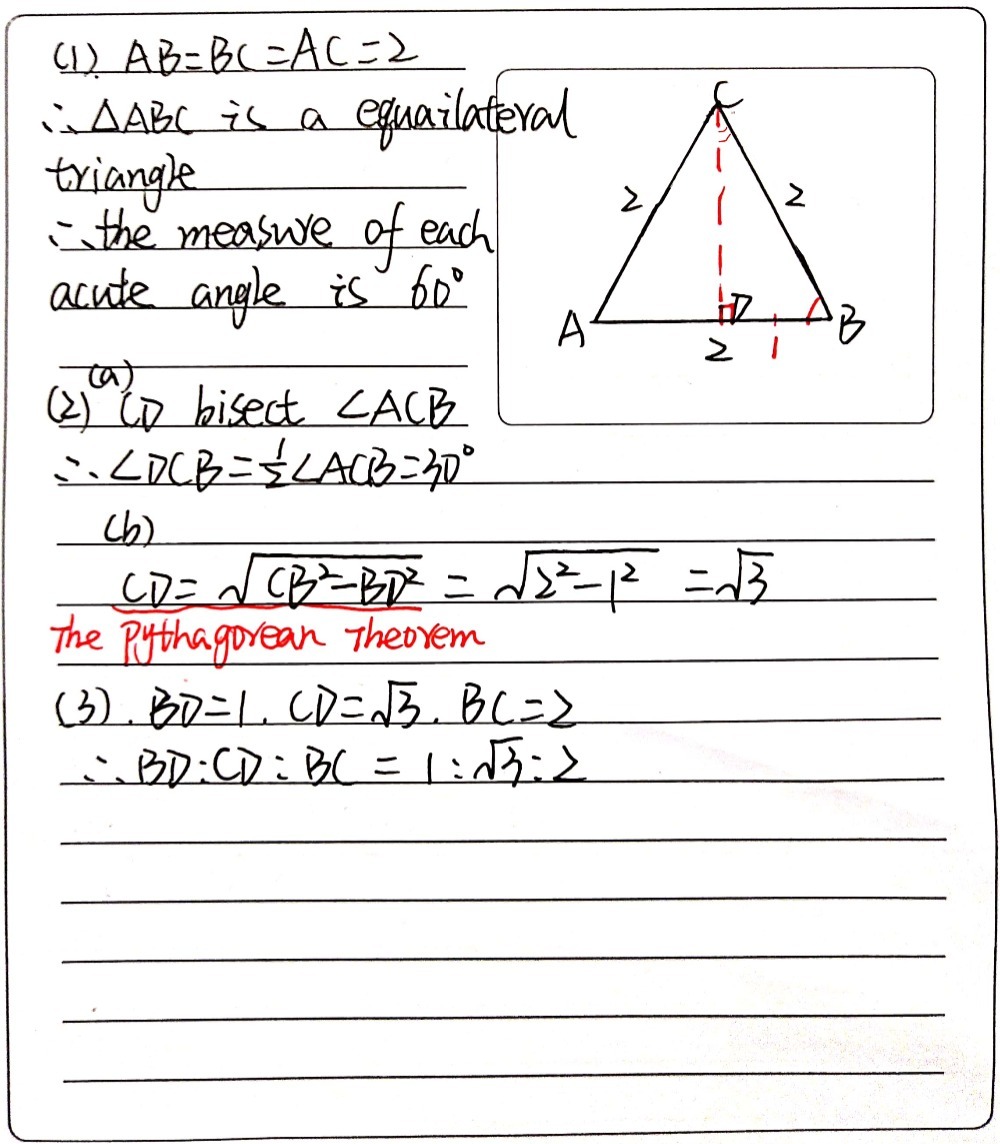 (1). AB=BC=AC=2
∴ △ABC is a equailateral
triangle
∴ the measure of each
acute angle is 60°
(a)
(2) CD bisect ∠ACB
∴ ∠DCB=½∠ACB=30°
(b)
CD= √(CB²-BD²) = √(2²-1²) =√3
The Pythagorean Theorem
(3). BD=1. CD=√3. BC=2
∴ BD:CD:BC = 1:√3:2
C
2 2
A D B
2 1